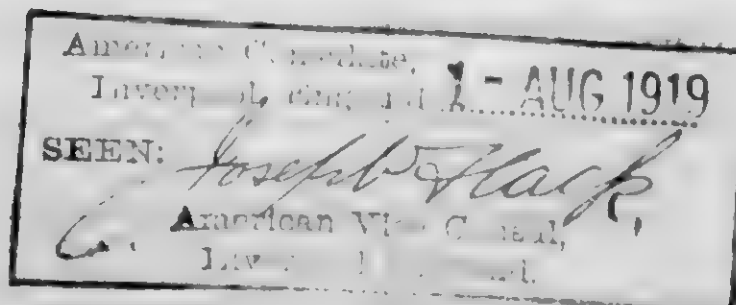 American Consulate,
Liverpool, England 1 - AUG 1919
SEEN: Joseph Flack
American Vice Consul,
Liverpool, England.